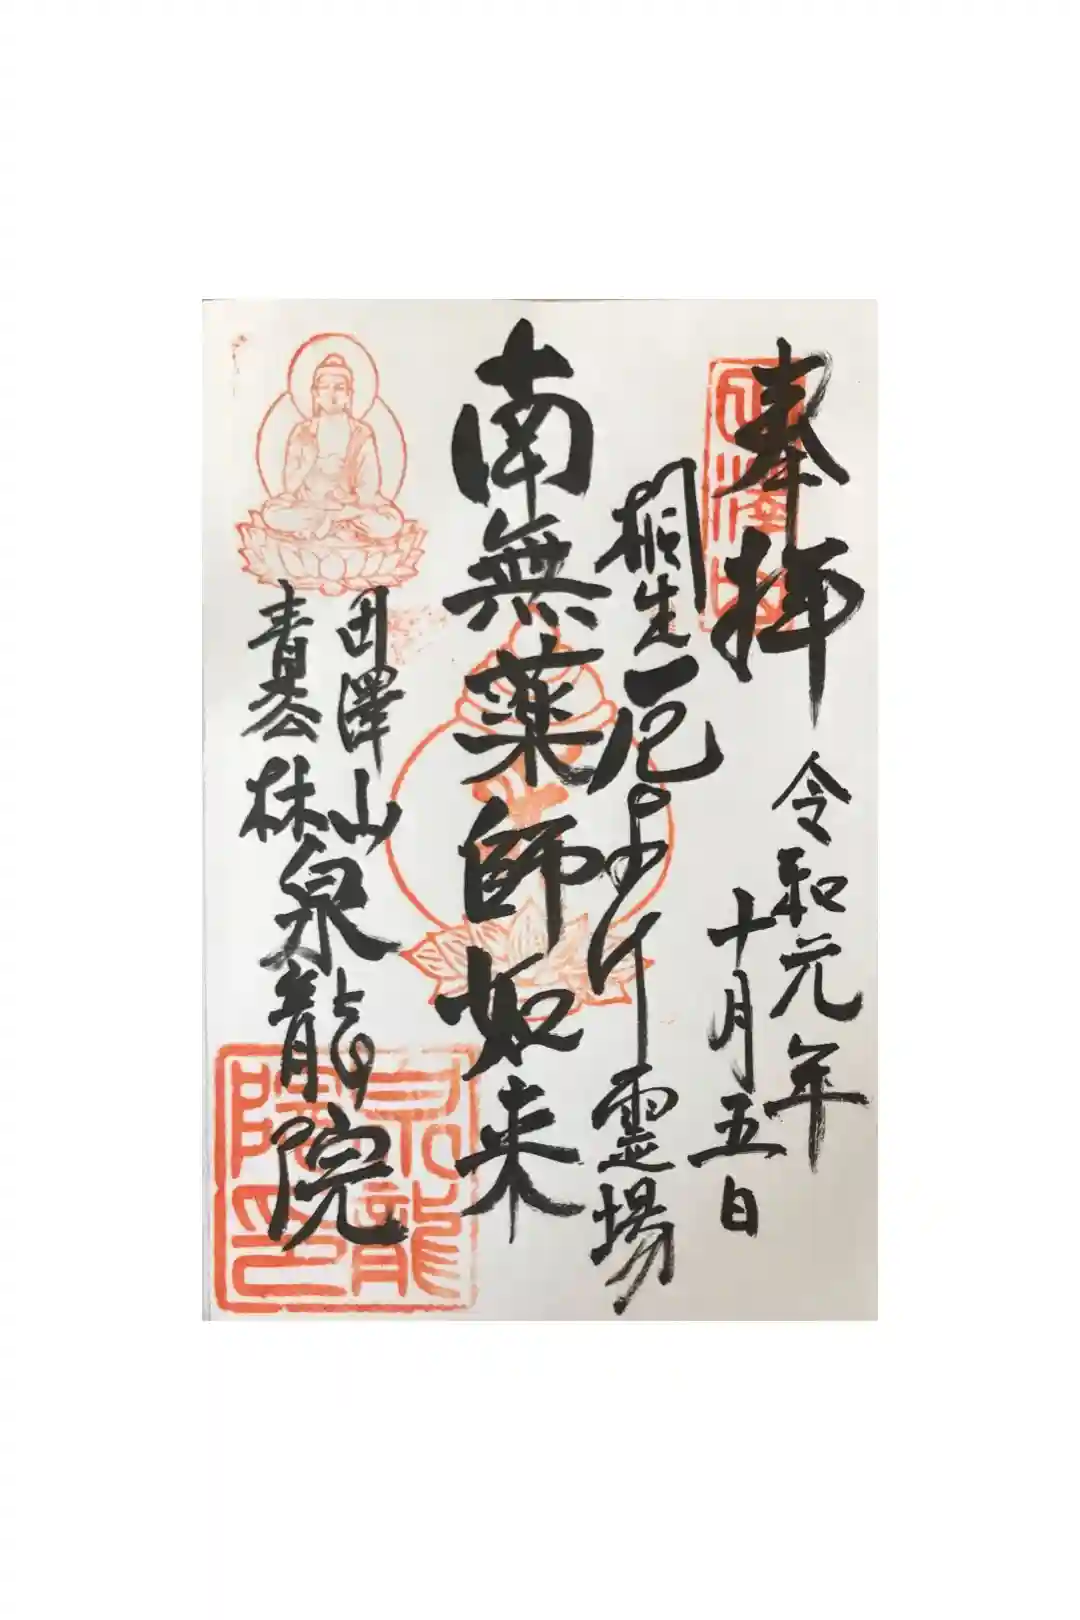 奉拝
令和元年
十月五日
桐生厄よけ霊場
南無薬師如来
田澤山
泉龍院
泉龍
院印